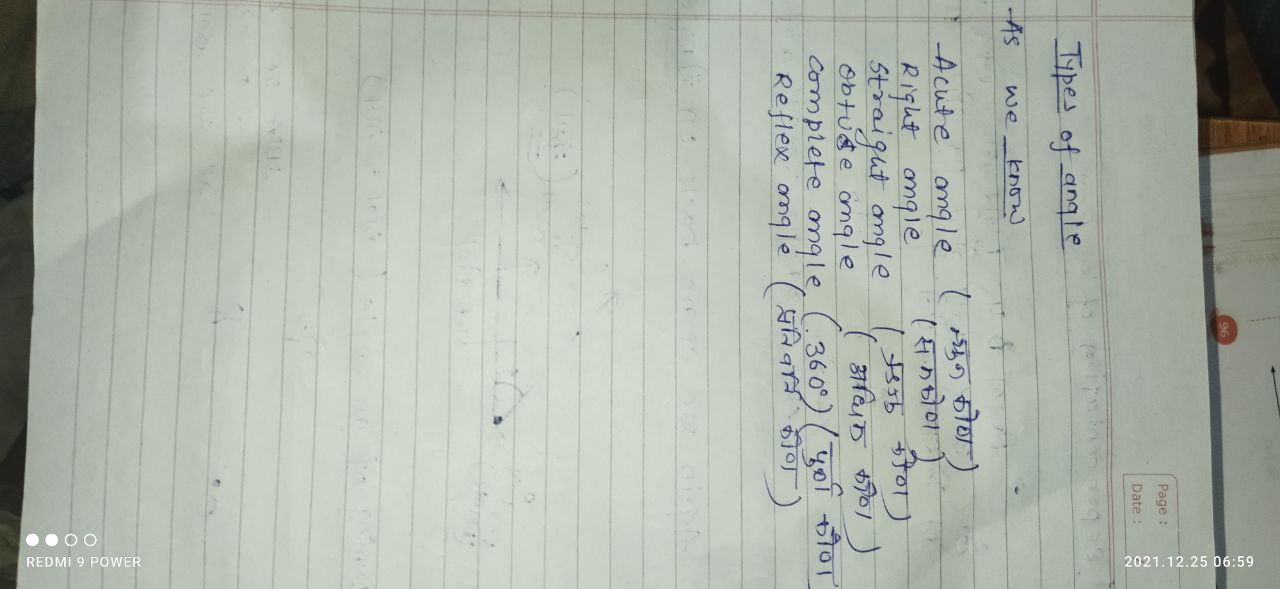 Page :
Date :
Types of angle
As we know
Acute angle ( न्युन कोण)
Right angle (समकोण)
Straight angle ( कोण)
obtuse angle ( अधिक कोण)
complete angle ( 360°) (पूर्ण कोण
Reflex angle ( कोण)
96
REDMI 9 POWER
2021.12.25 06:59